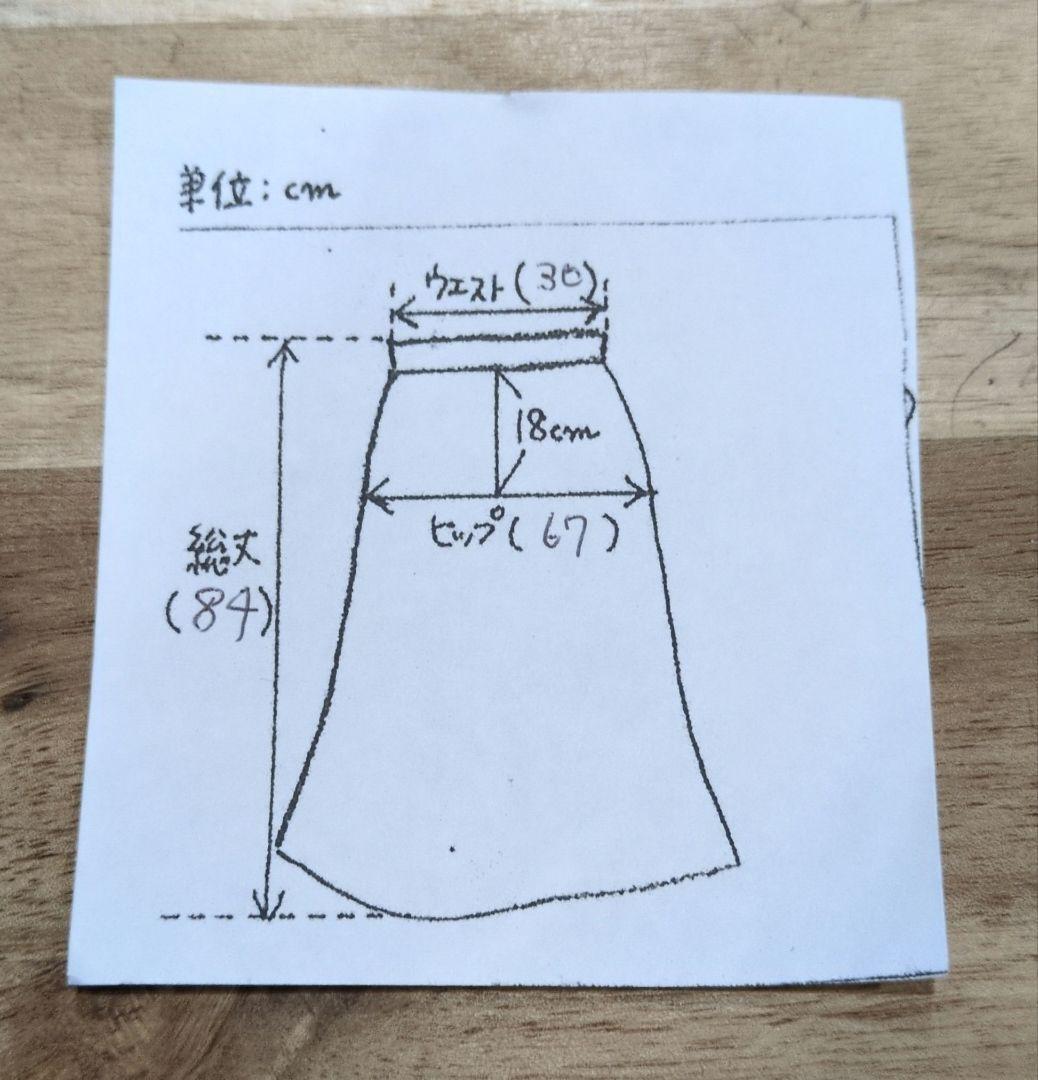 単位:cm
ウエスト(30)
18cm
ヒップ(67)
総丈
(84)